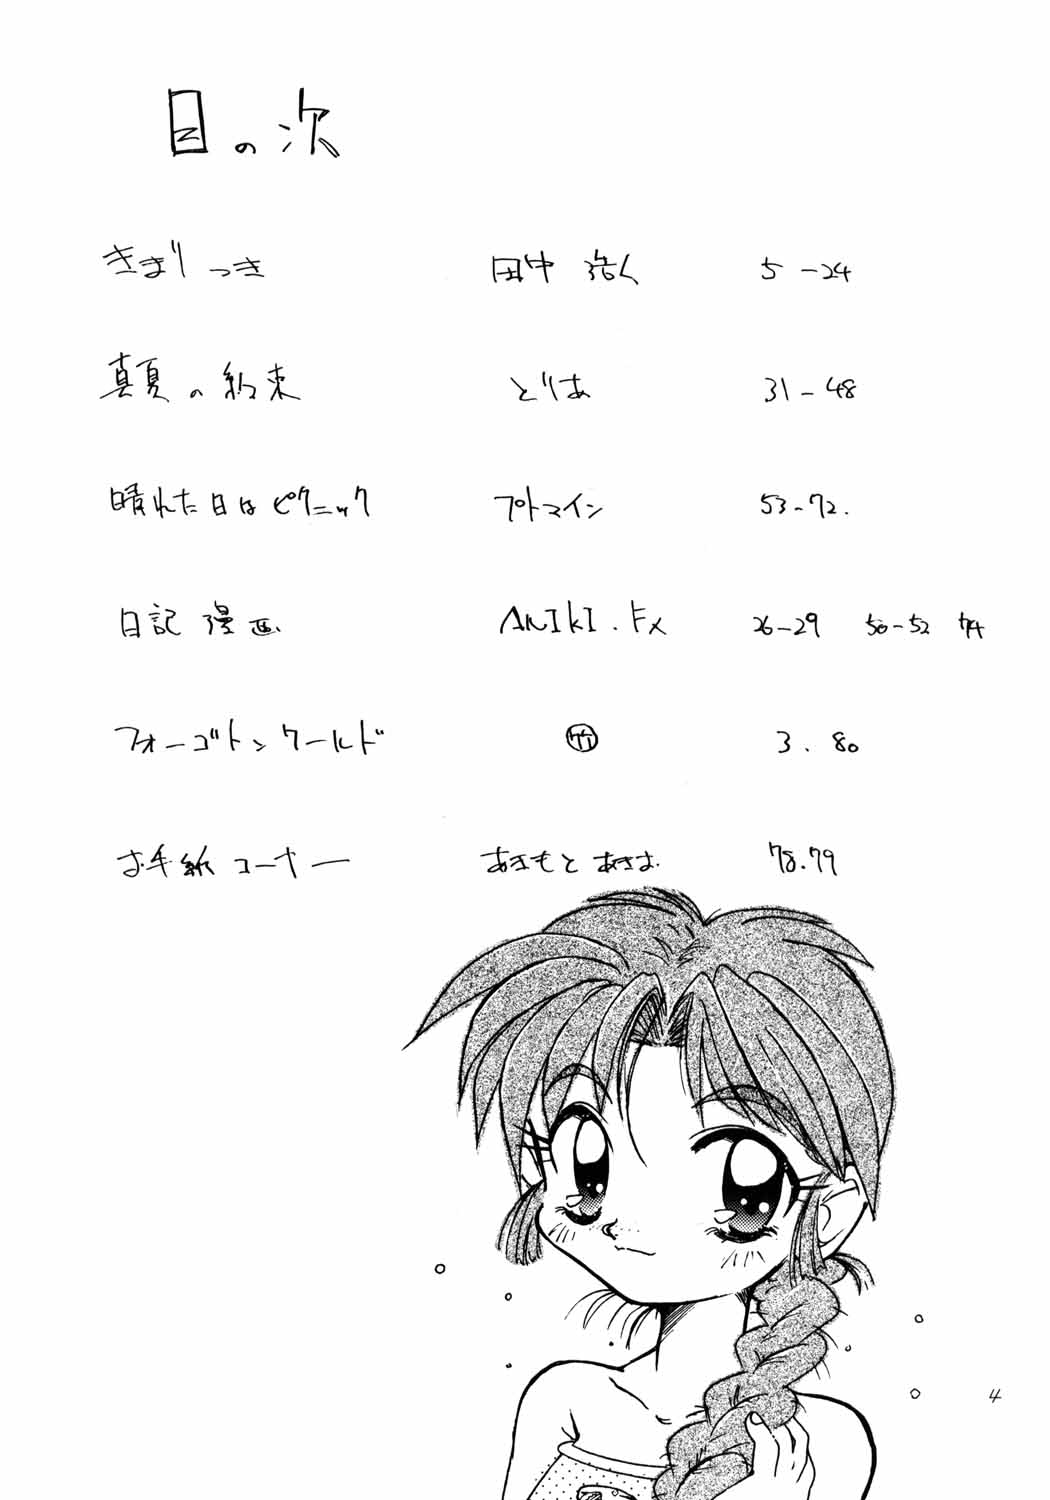 目の次
きまりっき 田中 浩人 5-24
真夏の約束 とりあ 31-48
晴れた日はピクニック プトマイン 53-72.
日記漫画 ANIKI.Fx 26-29 50-52 74
フォーゴトンワールド 竹 3.80
お手紙コーナー あきもと あきお 78.79
4